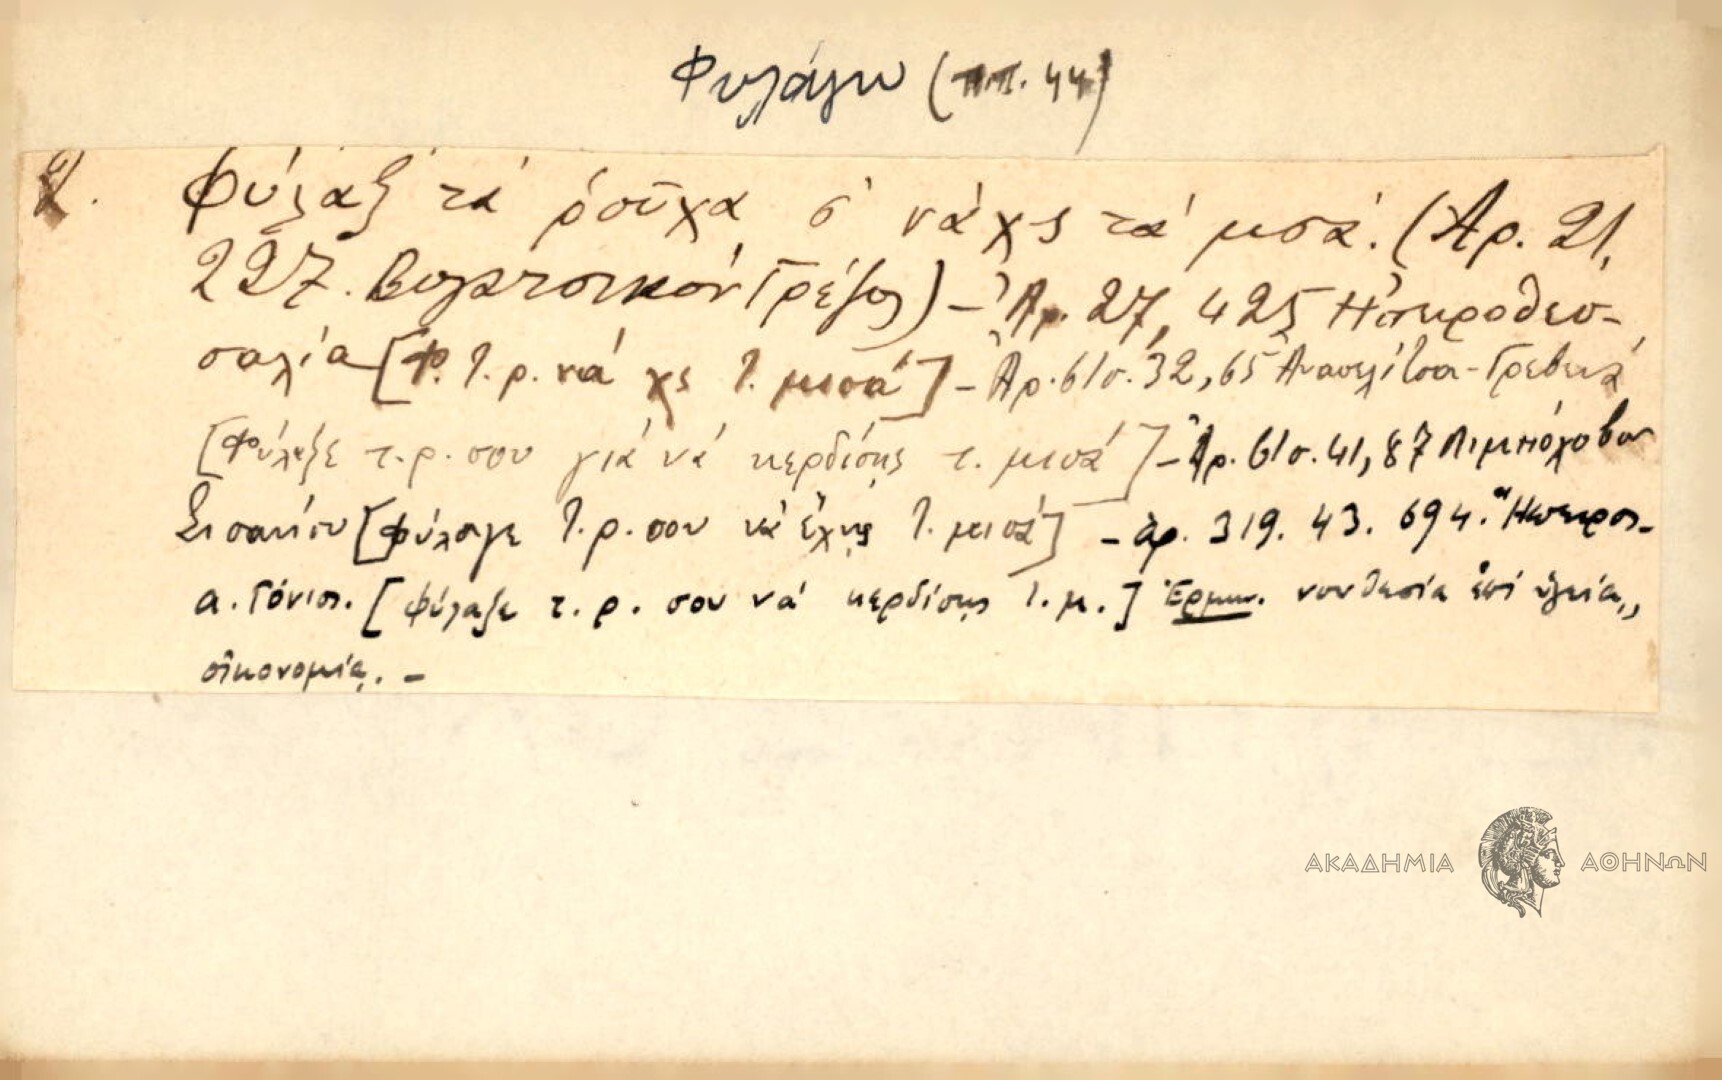 Φυλάγω (ππ. 44)
2. Φύλαξ τά ροῦχα σ' νάχς τά μσά. (Ἀρ. 21,
227. Βολτσικόν) – Ἀρ. 27, 425 Ἠπειροθεσ-
σαλία [Φ. τ. ρ. νά χς τ. μισά] – Ἀρ. 61σ. 32, 65 Ἀνασελίτσα-Γρεβενά
[Φύλαξε τ. ρ. σου γιά νά κερδίσῃς τ. μισά] – Ἀρ. 61σ. 41, 87
Σισανίου [Φύλαγε τ. ρ. σου νά ἔχῃς τ. μισά] – ἀρ. 319. 43. 694. Ἤπειρος-
α. Γόνιος. [Φύλαξε τ. ρ. σου νά κερδίσῃς τ. μ.] Ἑρμην. νουθεσία ἐπί
οἰκονομίᾳ. –
ΑΚΑΔΗΜΙΑ ΑΘΗΝΩΝ